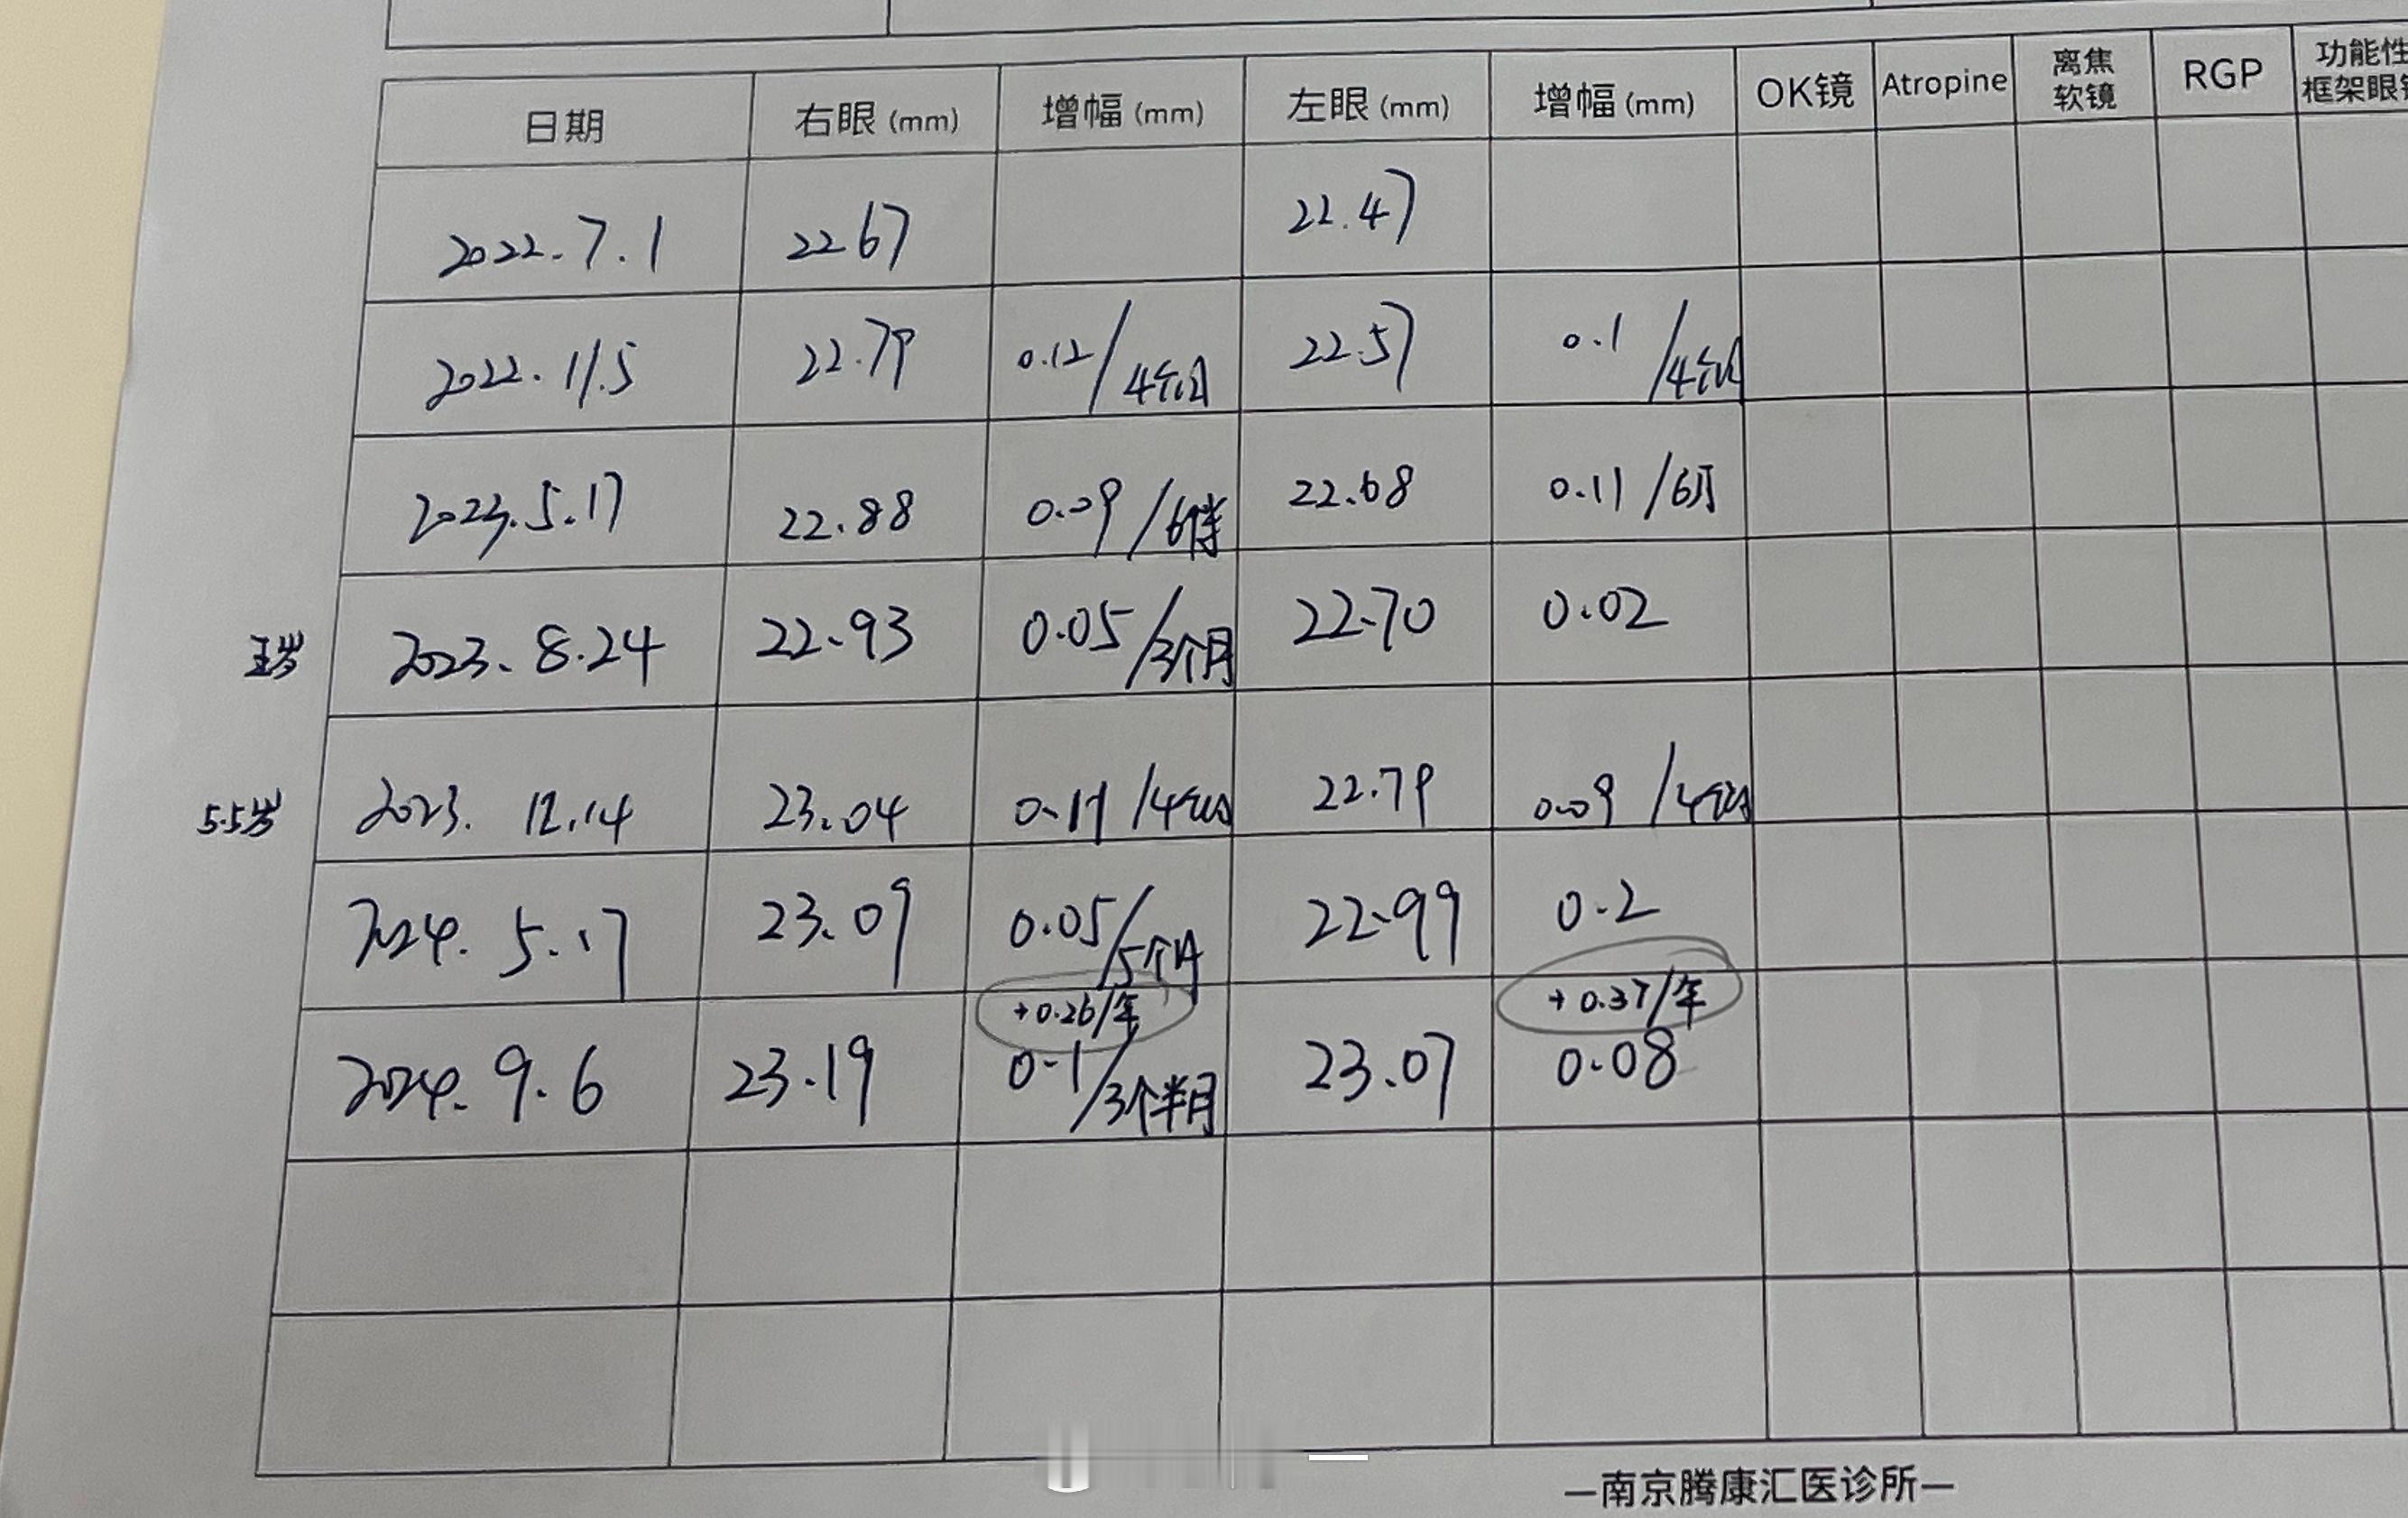 日期 右眼(mm) 增幅(mm) 左眼(mm) 增幅(mm) OK镜 Atropine 离焦软镜 RGP 功能性框架眼
2022.7.1 2267 22.47
2022.11.5 22.79 0.12/4个月 22.57 0.1/4个月
2023.5.17 22.88 0.09/6个半 22.68 0.11/6月
五岁 2023.8.24 22.93 0.05/3个月 22.70 0.02
5.5岁 2023.12.14 23.04 0.11/4个月 22.79 0.09/4个月
2024.5.17 23.09 0.05/5个月 22.99 0.2
+0.26/年 +0.37/年
2024.9.6 23.19 0.1/3个半月 23.07 0.08
—南京腾康汇医诊所—